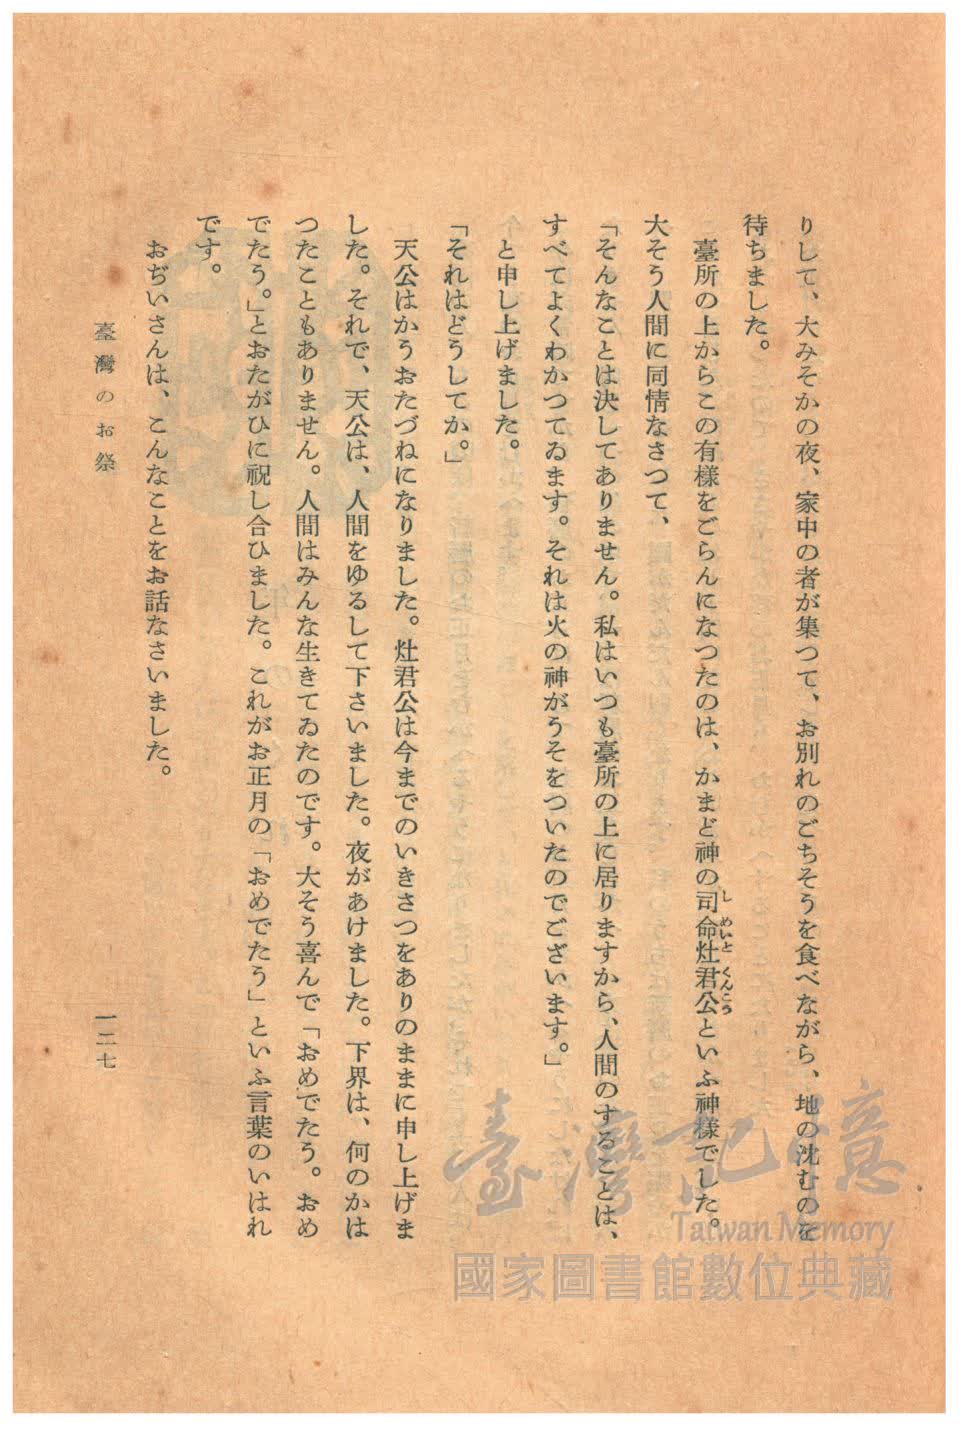 りして、大みそかの夜、家中の者が集つて、お別れのごちそうを食べながら、地の沈むのを
待ちました。
臺所の上からこの有様をごらんになつたのは、かまど神の司命灶君公といふ神様でした。
しめいとくんこう
大そう人間に同情なさつて、
「そんなことは決してありません。私はいつも臺所の上に居りますから、人間のすることは、
すべてよくわかつてゐます。それは火の神がうそをついたのでございます。」
と申し上げました。
「それはどうしてか。」
天公はかうおたづねになりました。灶君公は今までのいきさつをありのままに申し上げま
した。それで、天公は、人間をゆるして下さいました。夜があけました。下界は、何のかは
つたこともありません。人間はみんな生きてゐたのです。大そう喜んで「おめでたう。おめ
でたう。」とおたがひに祝し合ひました。これがお正月の「おめでたう」といふ言葉のいはれ
です。
おぢいさんは、こんなことをお話なさいました。
臺灣のお祭
一二七
臺灣記憶
Taiwan Memory
國家圖書館數位典藏